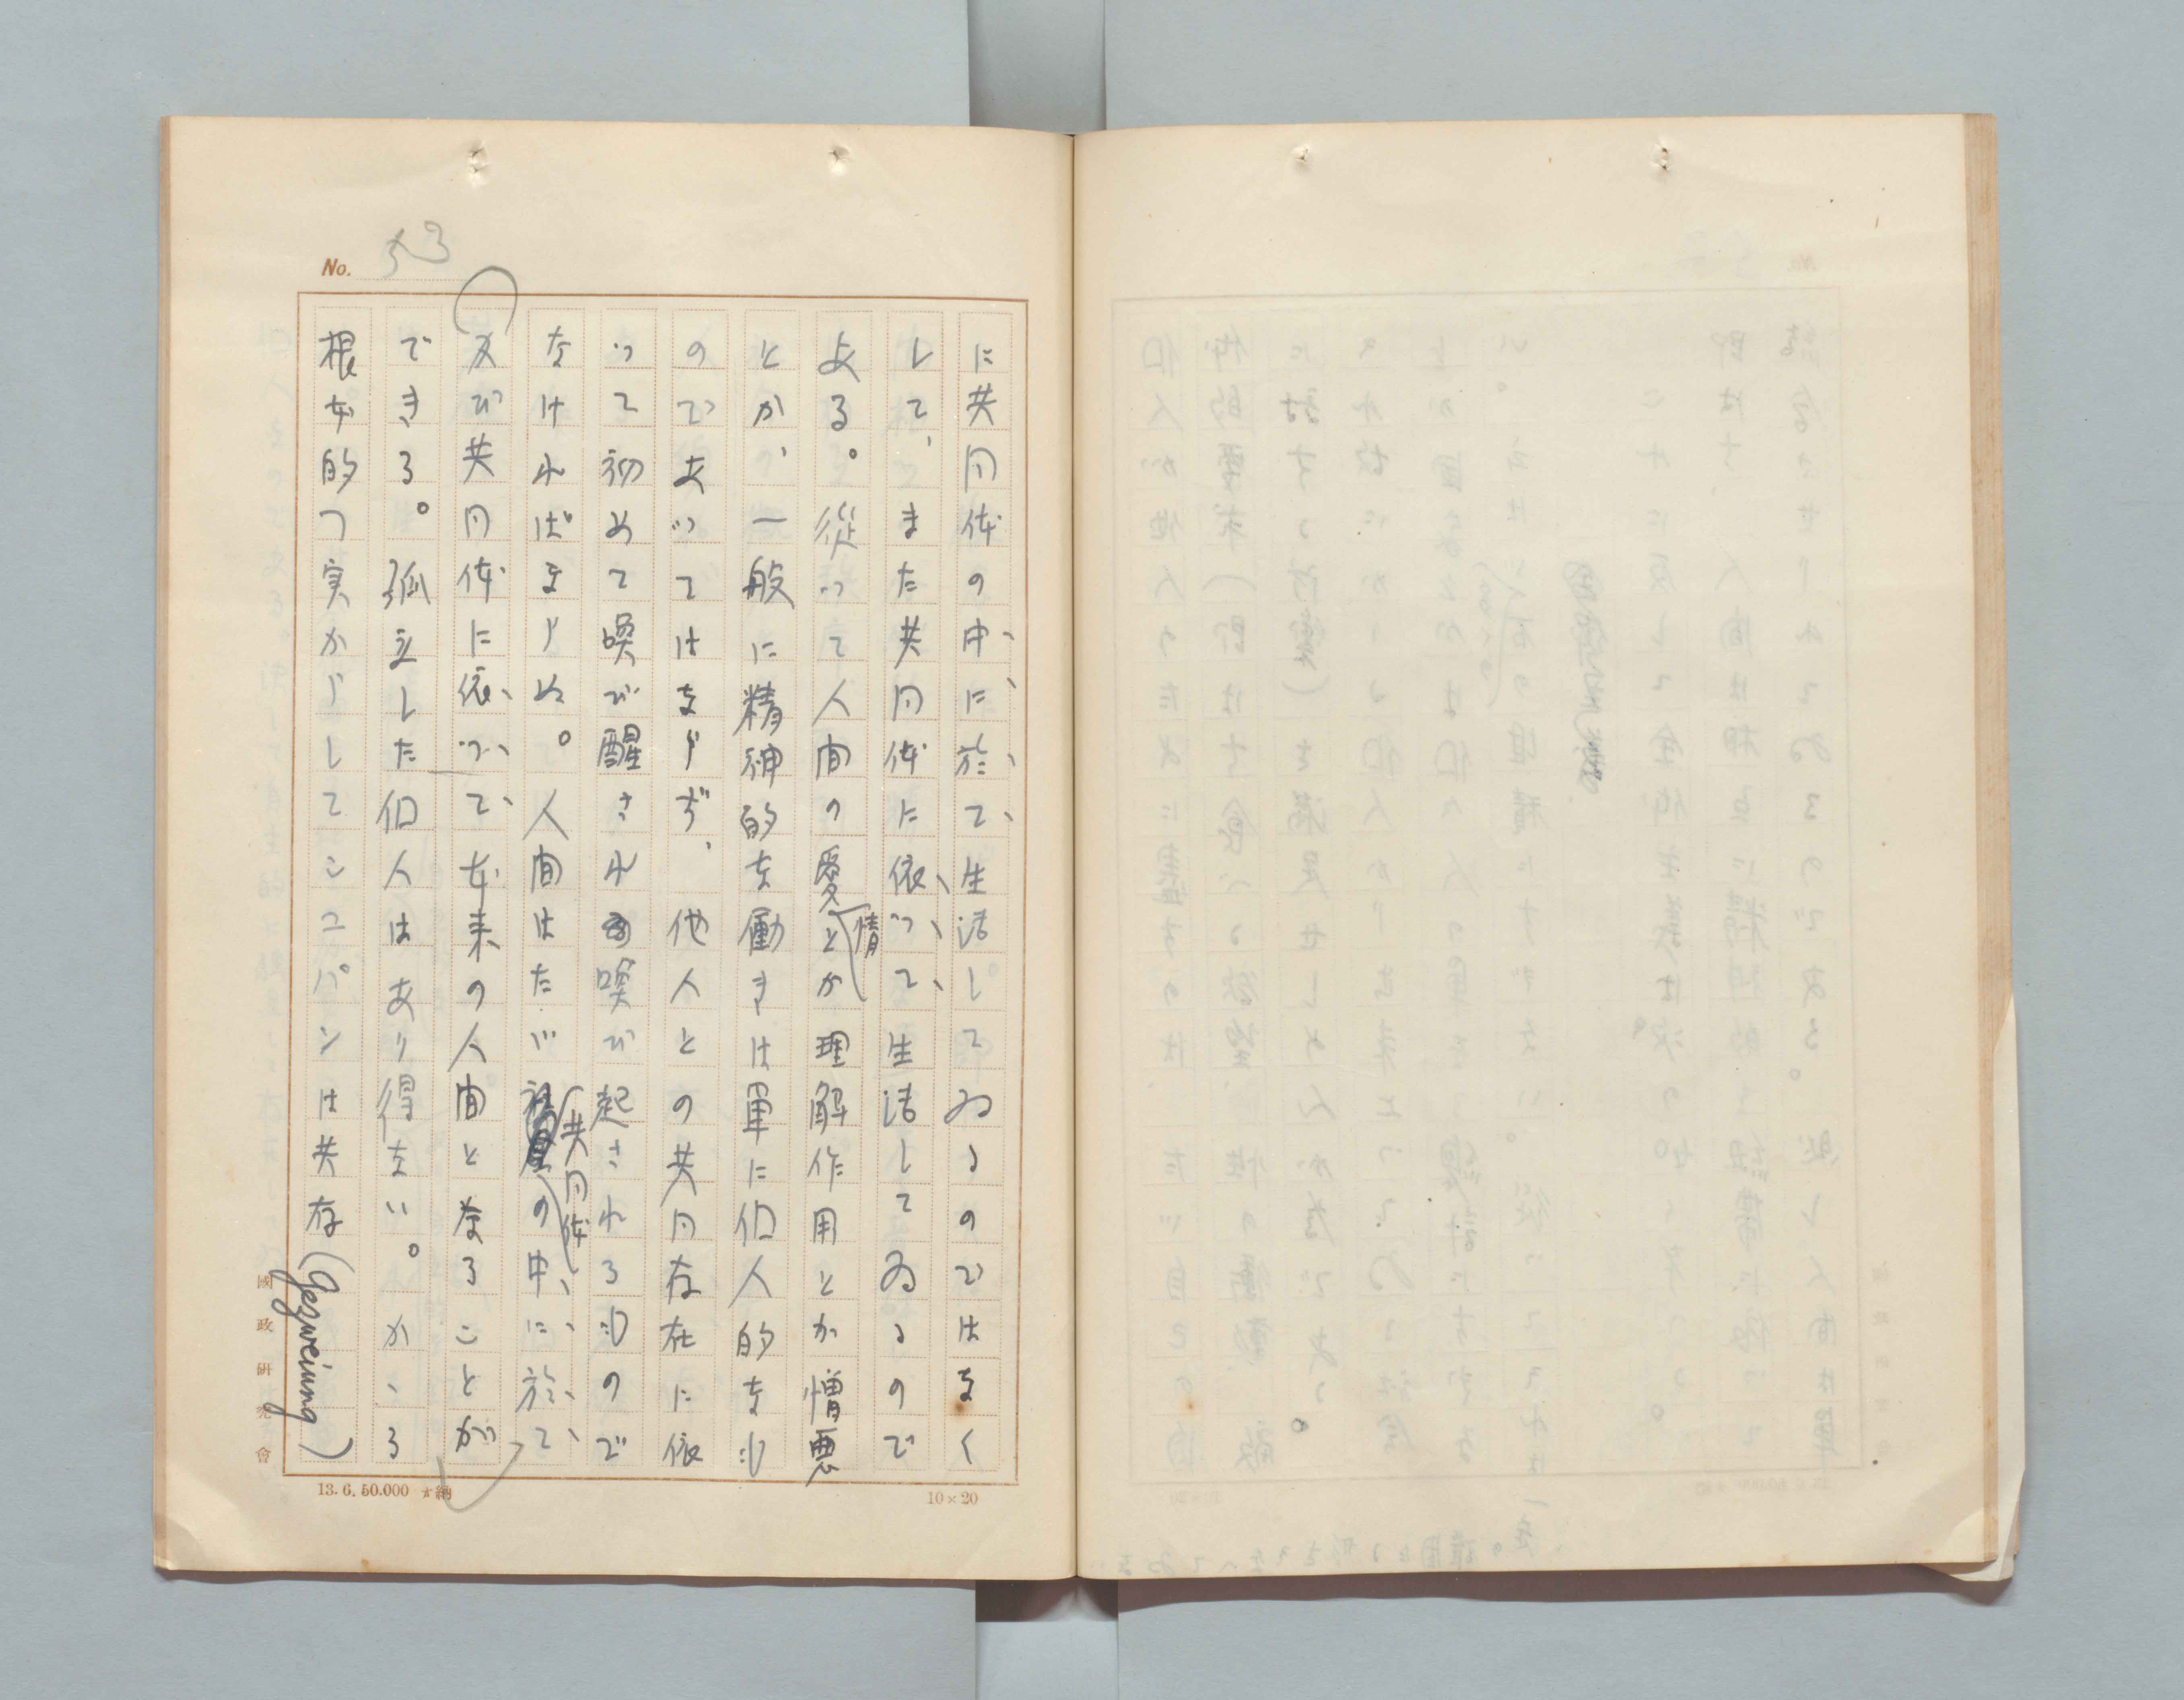 No. 53
に共同体の中に於て生活してゐるのではなく
して、また共同体に依つて生活してゐるので
よる。従つて人間の愛情とか理解作用とか憎悪
とか、一般に精神的な働きは単に個人的なもの
のであつてはならず、他人との共同存在に依
つて初めて喚び醒され喚び起されるもので
なければならぬ。人間はたゞ共同体の中に於て
及び共同体に依つて、本来の人間となることが
できる。孤立した個人はあり得ない。かゝる
根本的つ実からしてシユパンは共存(Gezweiung)
國政研究會
13.6.50.000 大納
10×20